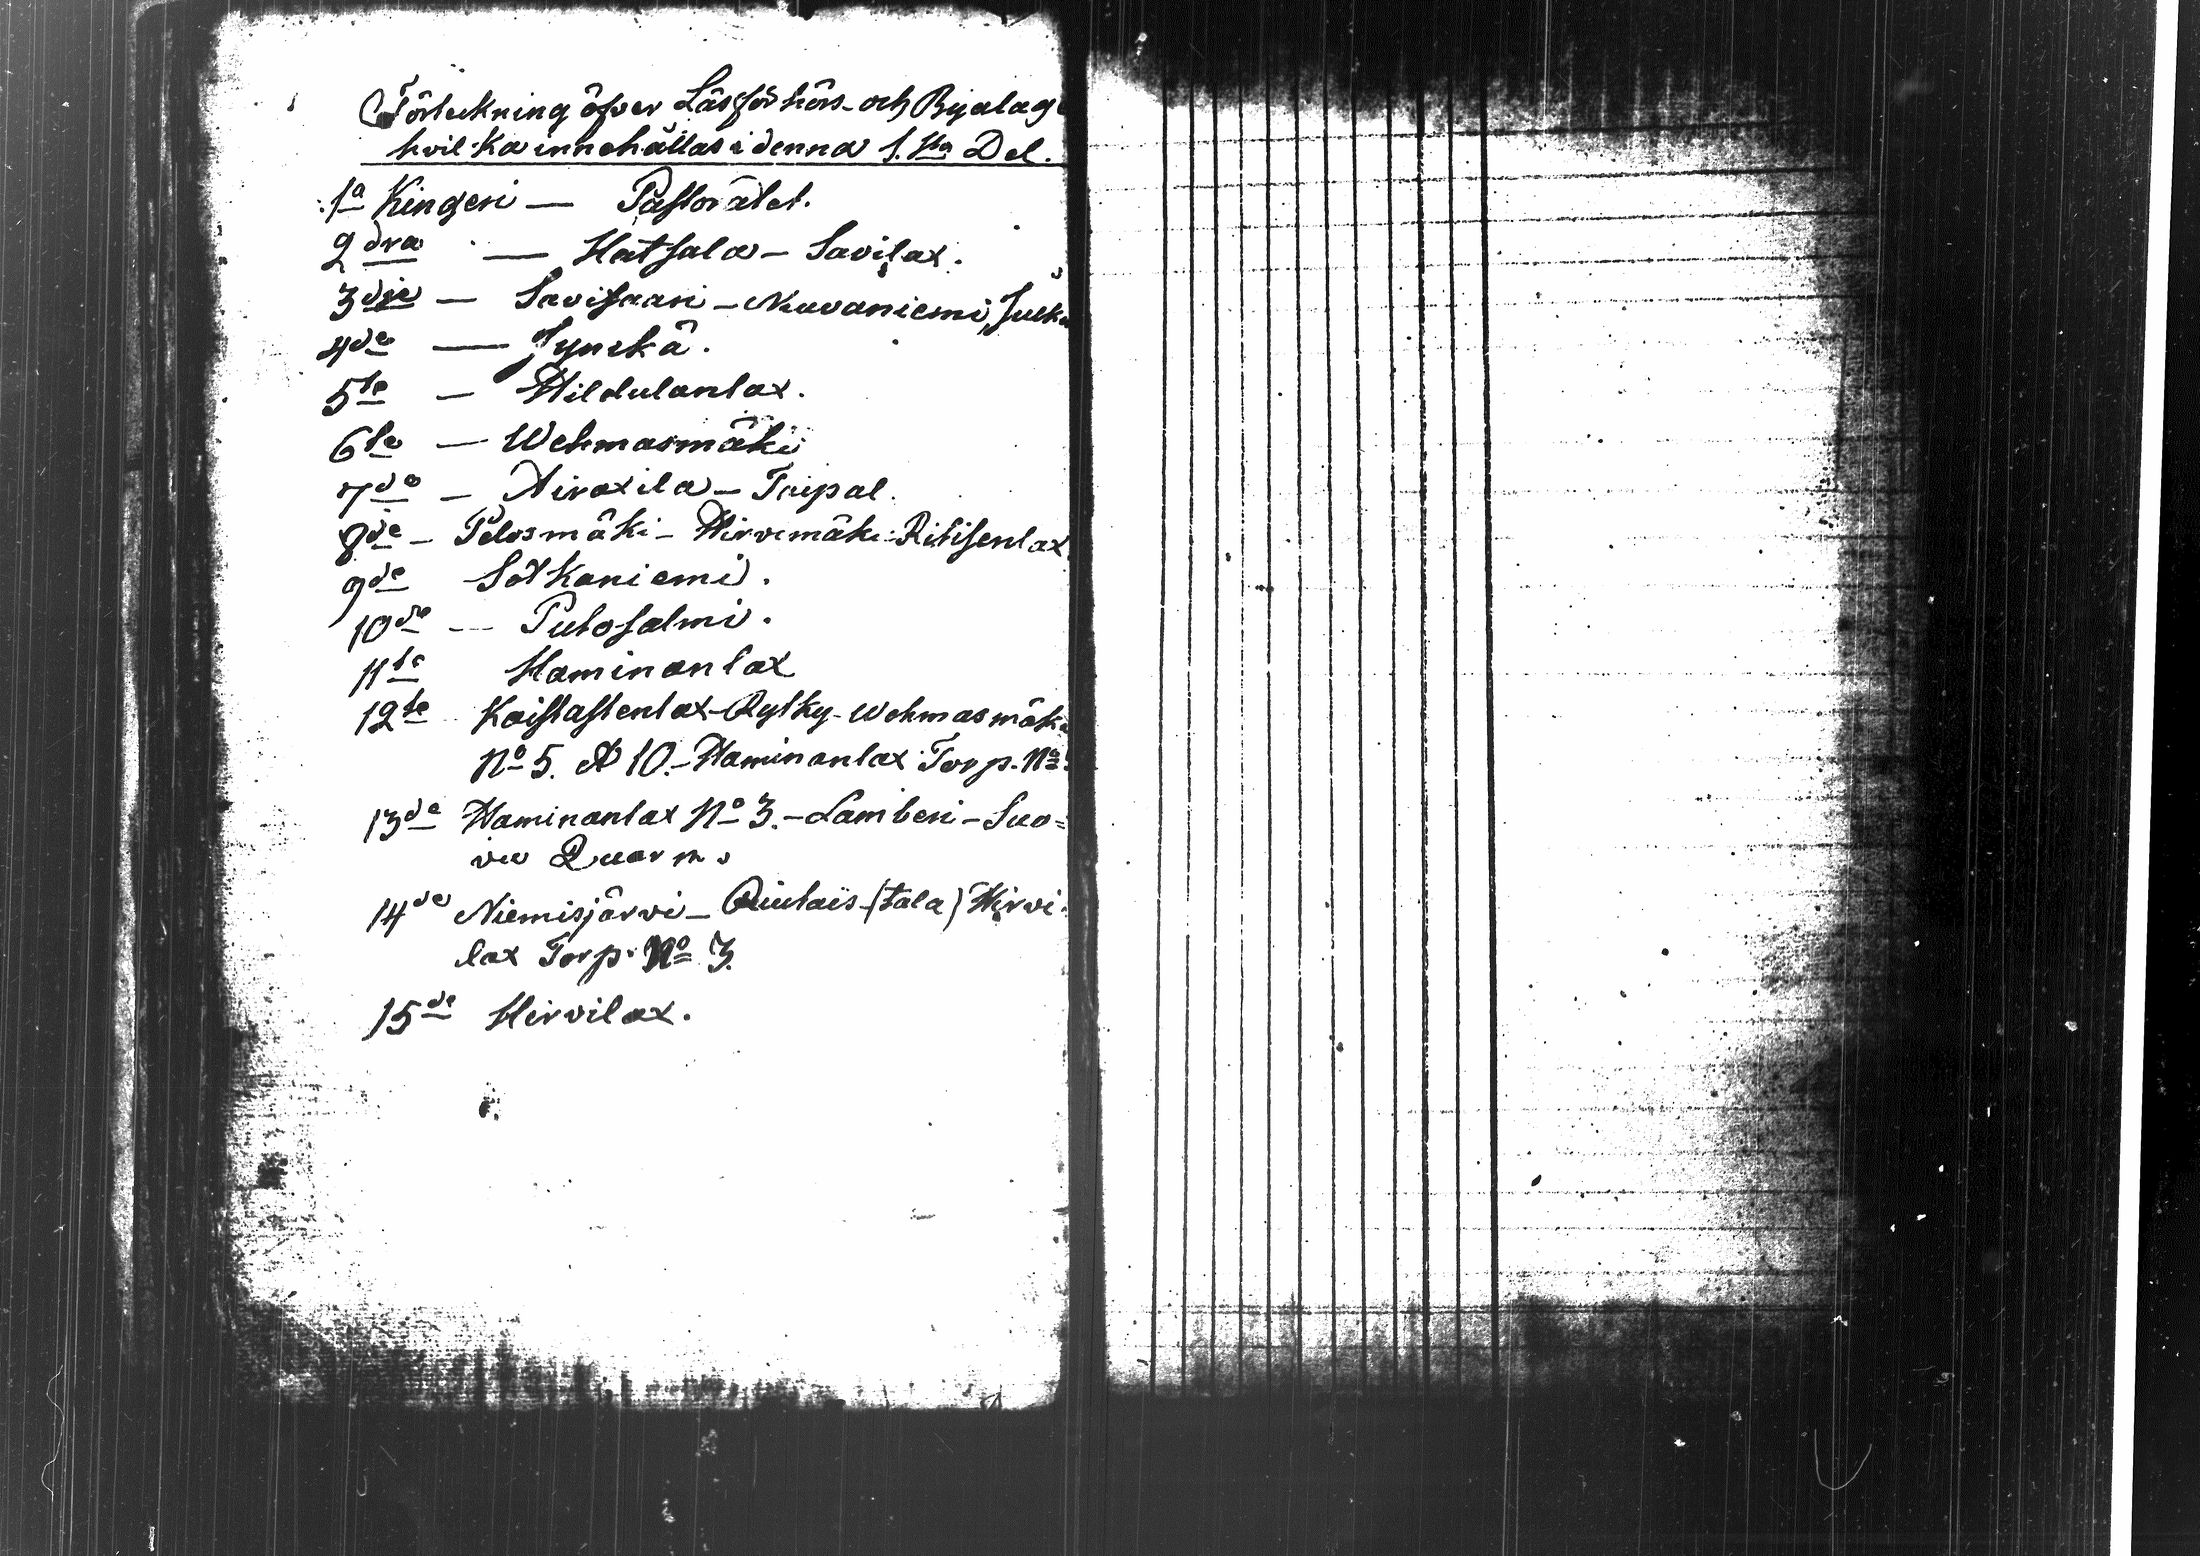 Förteckning öfver Läsförhörs- och Byalag
hvilka innehållas i denna 1.sta Del.
1a Kingeri — Pastorätet.
2dra — Hatsala — Savilax.
3dje — Savisaari — Neuvaniemi, Julk
4de — Jynckä.
5te — Hiltulanlax.
6te — Wehmasmäki
7de — Airaxila — Taipal.
8de — Pelosmäki — Hirvimäki Ritisenlax
9de Sotkaniemi.
10de — Putosalmi.
11te Haminanlax
12te Kaislastenlax - Rytky - Wehmasmäki
No 5. A 10. — Haminanlax Torp. No
13de Haminanlax No 3. — Lamberi — Suo=
vu Quarn.
14de Niemisjärvi — (tala) Hirvi-
lax Torp. No 3.
15de Hirvilax.